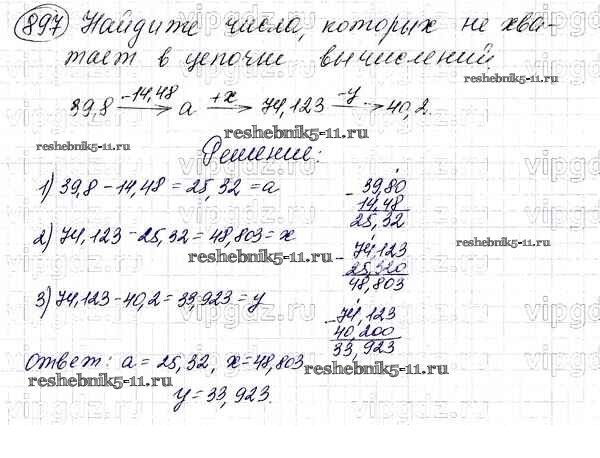 897 Найдите числа, которых не хва-
тает в цепочке вычислений.
39,8 -14,48 → a +x → 74,123 -y → 40,2.
Решение:
1) 39,8 - 14,48 = 25,32 = a
39,80
- 14,48
25,32
2) 74,123 - 25,32 = 48,803 = x
74,123
- 25,320
48,803
3) 74,123 - 40,2 = 33,923 = y
74,123
- 40,200
33,923
Ответ: a = 25,32, x = 48,803
y = 33,923.
reshebnik5-11.ru
reshebnik5-11.ru
reshebnik5-11.ru
reshebnik5-11.ru
reshebnik5-11.ru
reshebnik5-11.ru
reshebnik5-11.ru
vipgdz.ru